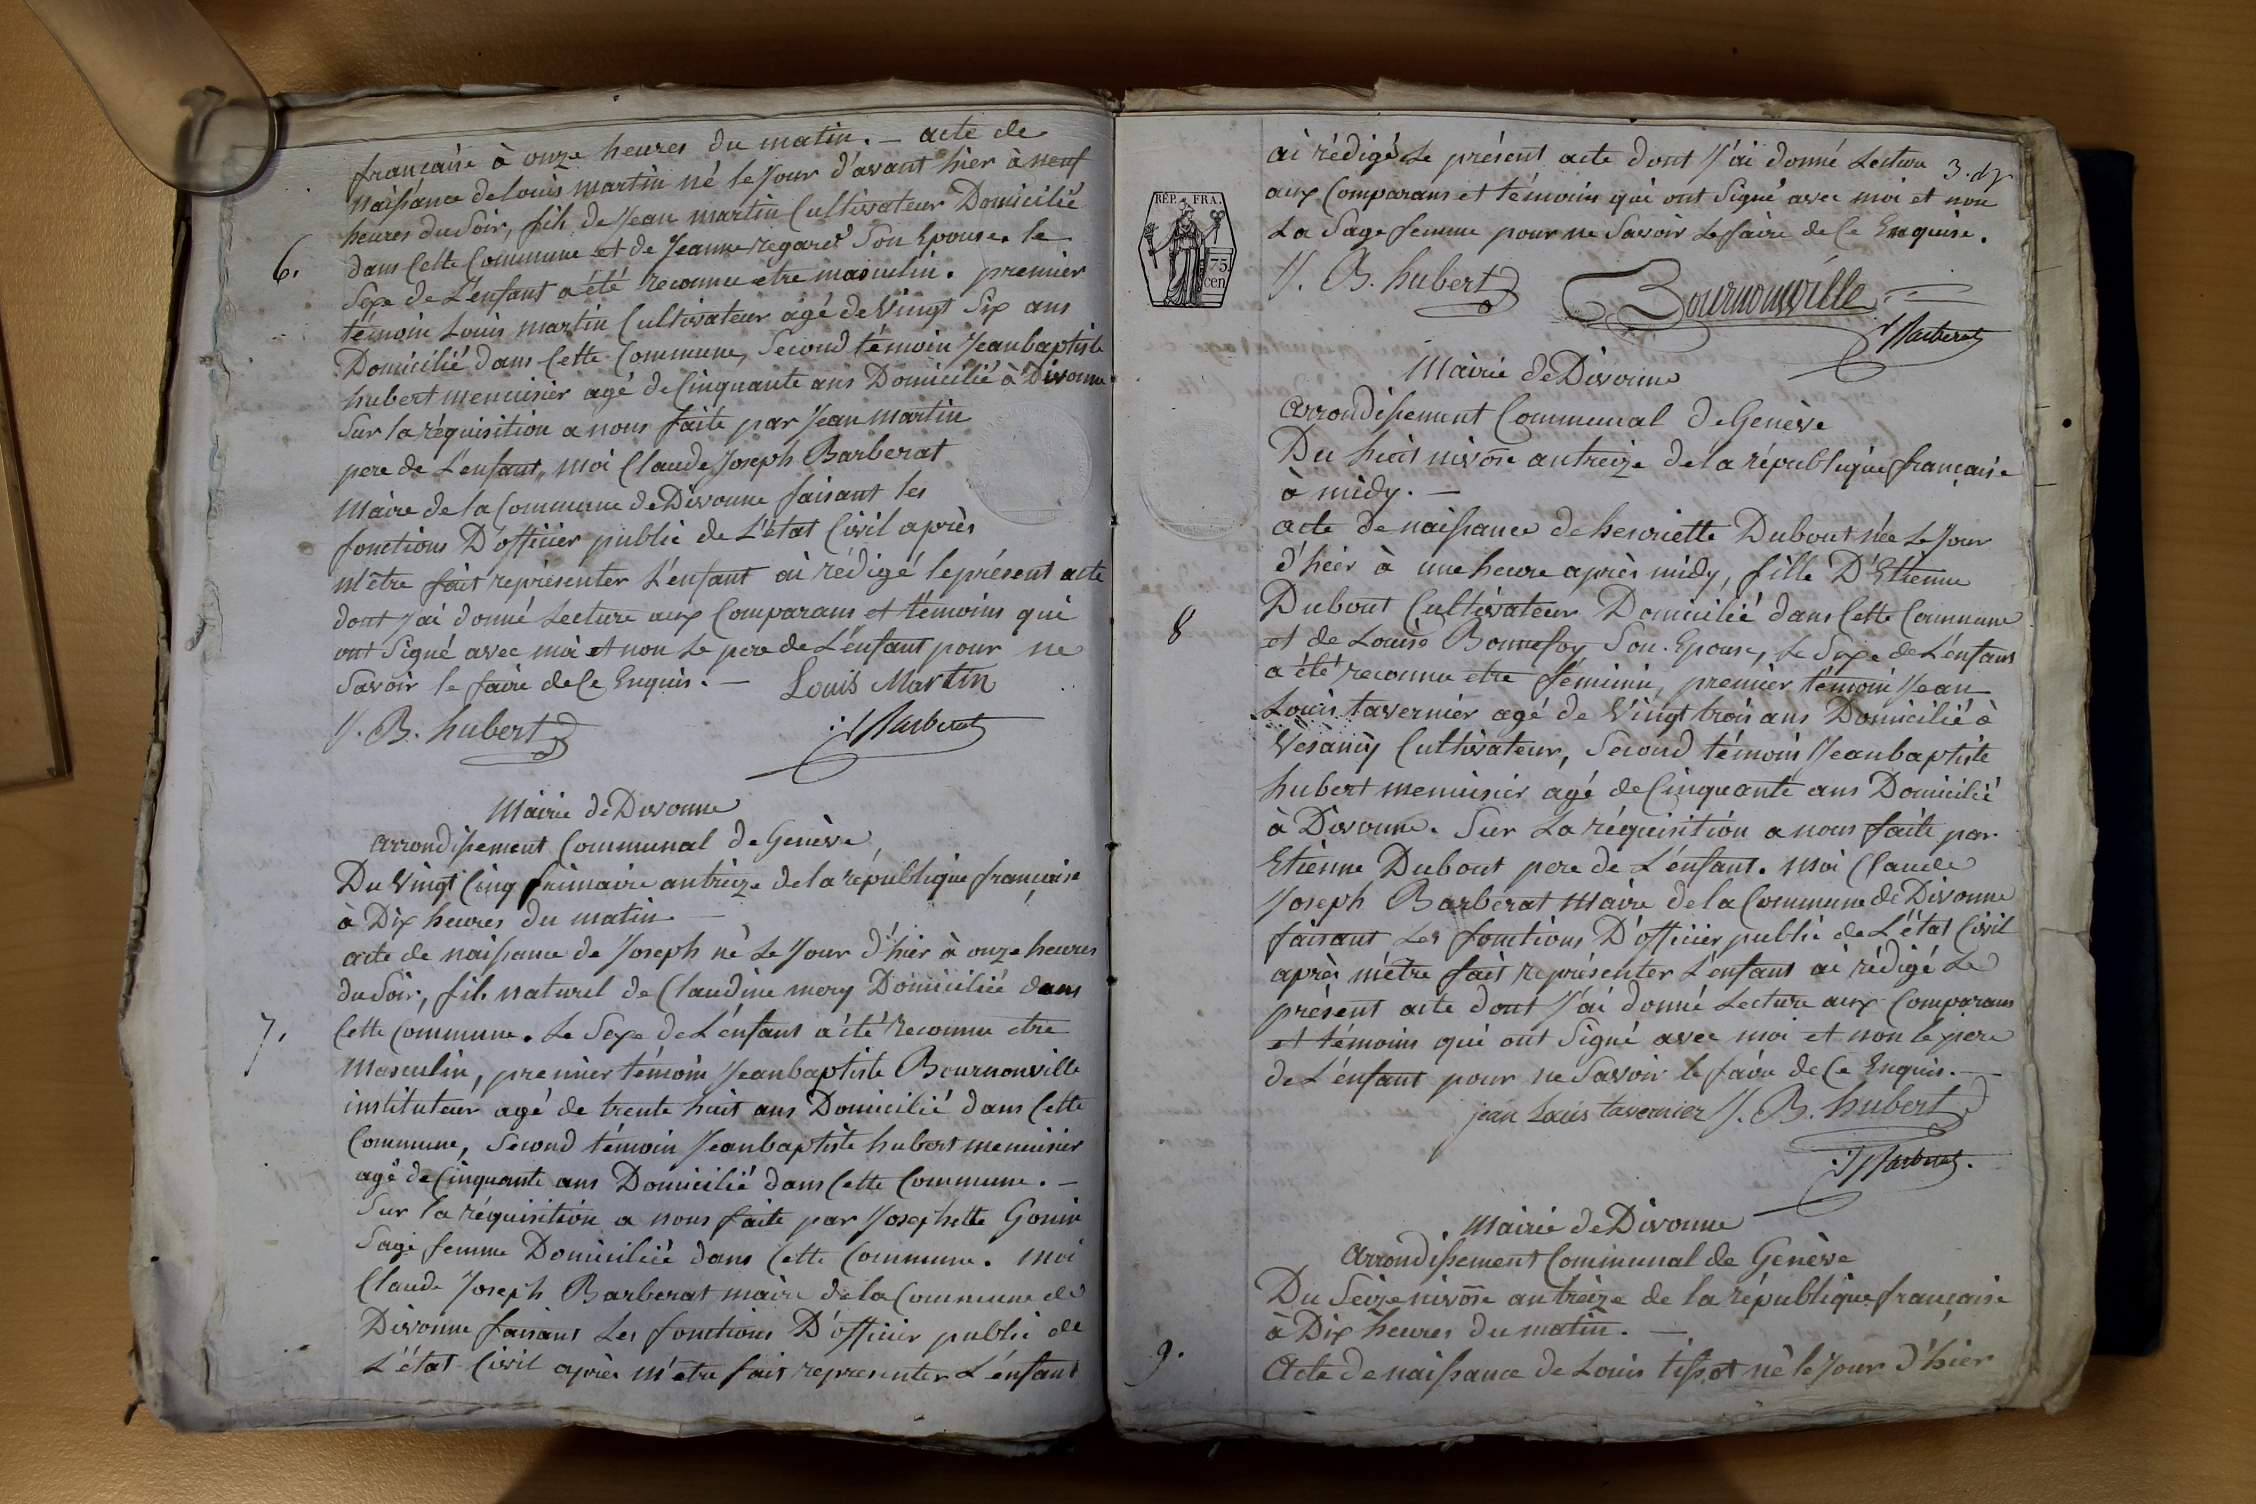 française à onze heures du matin. — acte de
naissance de Louis martin né le Jour d'avant hier à neuf
heures du Soir, fils de Jean martin Cultivateur Domicilié
6.
dans Cette Commune et de Jeanne regard Son Epouse. le
Sexe de L'enfant a été reconnu etre masculin. premier
témoin Louis martin Cultivateur agé de Vingt Six ans
Domicilié dans Cette Commune, Second témoin Jean baptiste
hubert menuisier agé de Cinquante ans Domicilié à Divonne
Sur la réquisition a nous faite par Jean martin
pere de L'enfant, moi Claude Joseph Barberat
Maire de la Commune de Divonne faisant les
fonctions D'officier public de L'état Civil après
m'être fait représenter L'enfant ai rédigé le présent acte
dont J'ai donné Lecture aux Comparans et témoins qui
ont Signé avec moi et non Le pere de L'énfant pour ne
Savoir le faire de Ce Enquis. — Louis Martin
J. B. hubert Barberat
Mairie de Divonne
arrondissement Communal de Genève,
Du Vingt Cinq frimaire an treize de la république française
à Dix heures du matin —
acte de naissance de Joseph né Le Jour d'hier à onze heures
du Soir, fils naturel de Claudine mory Domiciliée dans
7.
Cette Commune. Le Sexe de L'énfant a été reconnu etre
Masculin, premier témoin Jean baptiste Bournonville
instituteur agé de trente huit ans Domicilié dans Cette
Commune, Second témoin Jean baptiste hubert menuisier
agé de Cinquante ans Domicilié dans Cette Commune. —
Sur la réquisition a nous faite par Josephette Gonin
Sage femme Domiciliée dans Cette Commune. moi
Claude Joseph Barberat maire de la Commune de
Divonne faisant Les fonctions D'officier public de
L'état Civil après m'etre fait representer L'énfant
ai rédigé Le présent acte dont J'ai donné Lecture
aux Comparans et témoins qui ont Signé avec moi et non
La Sage femme pour ne Savoir Le faire de Ce Enquise.
RÉP. FRA.
75
cen
J. B. hubert Bournonville
Barberat
Mairie de Divonne
arrondissement Communal de Genève
Du huit nivose an treize de la république française
à midy. —
acte de naissance de henriette Dubout née Le Jour
d'hier à une heure après midy, fille D'Etienne
8
Dubout Cultivateur Domicilié dans Cette Commune
et de Louise Bonnefoy Son Epouse, Le Sexe de L'énfant
a été reconnu etre féminin, premier témoin Jean
Louis tavernier agé de Vingt trois ans Domicilié à
Vesancy Cultivateur, Second témoin Jean baptiste
hubert menuisier agé de Cinquante ans Domicilié
à Divonne. Sur La réquisition a nous faite par
Etienne Dubout pere de L'énfant. moi Claude
Joseph Barberat Maire de la Commune de Divonne
faisant Les fonctions D'officier public de L'état Civil
après m'être fait représenter L'enfant ai rédigé Le
présent acte dont J'ai donné Lecture aux Comparans
et témoins qui ont Signé avec moi et non le pere
de L'énfant pour ne Savoir le faire de Ce Enquis. —
jean Louis tavernier J. B. hubert
Barberat.
Mairie de Divonne
Arrondissement Communal de Genève
Du Seize nivose an treize de la république française
à Dix heures du matin. —
9.
Acte de naissance de Louis tissot né le Jour d'hier